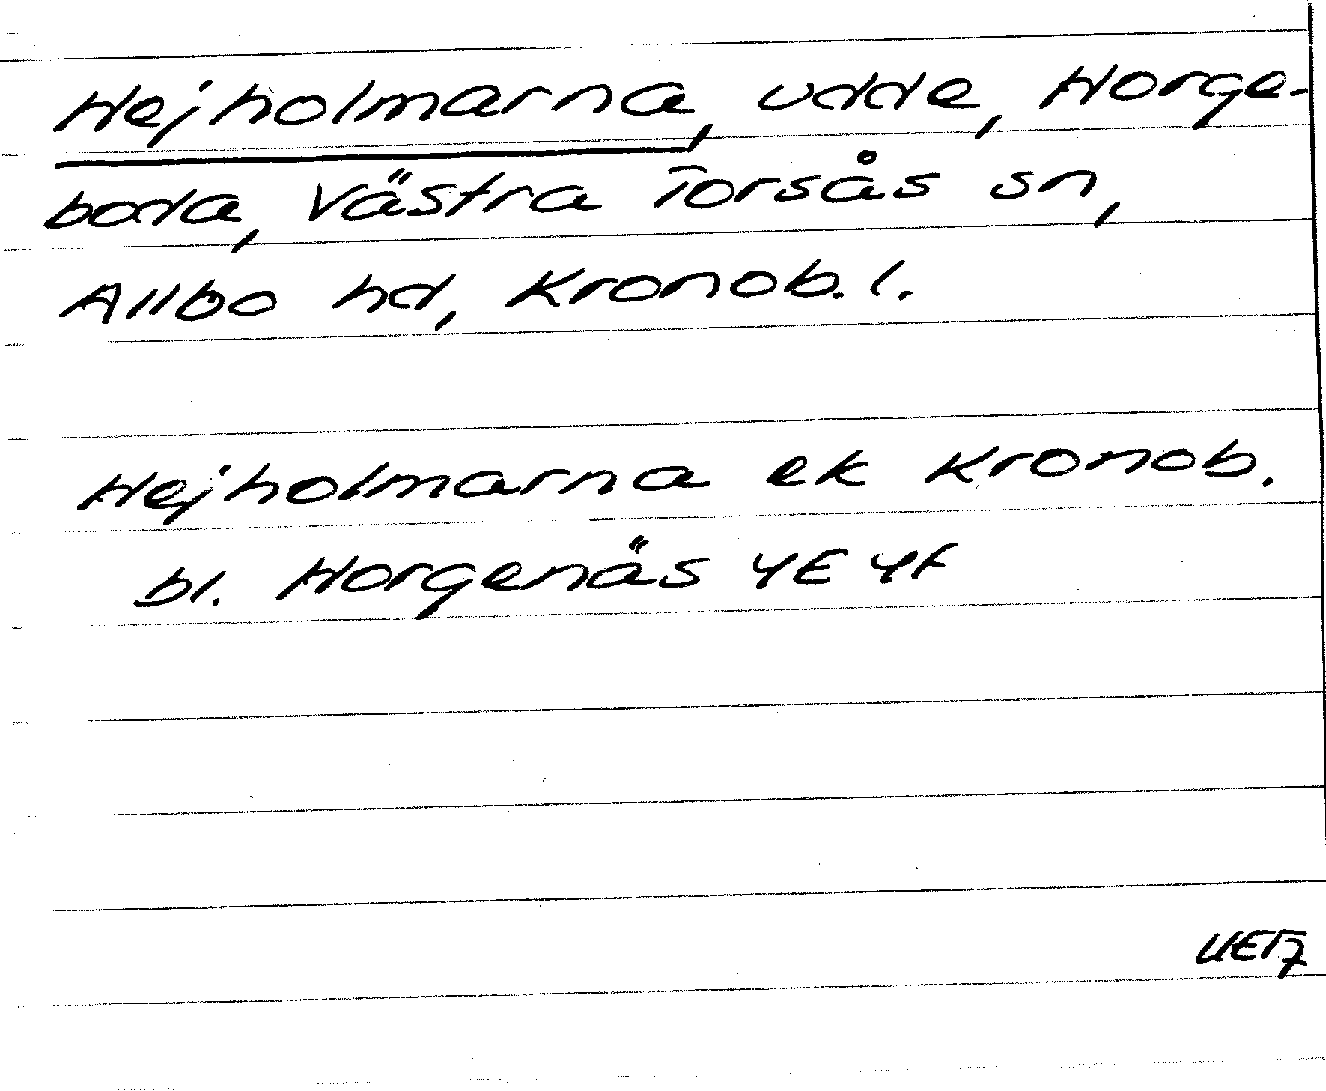 Hejholmarna, udde, Horge-
boda, Västra Torsås sn,
Allbo hd, Kronob. l.
Hejholmarna ek Kronob.
bl. Horgenäs 4E 4f